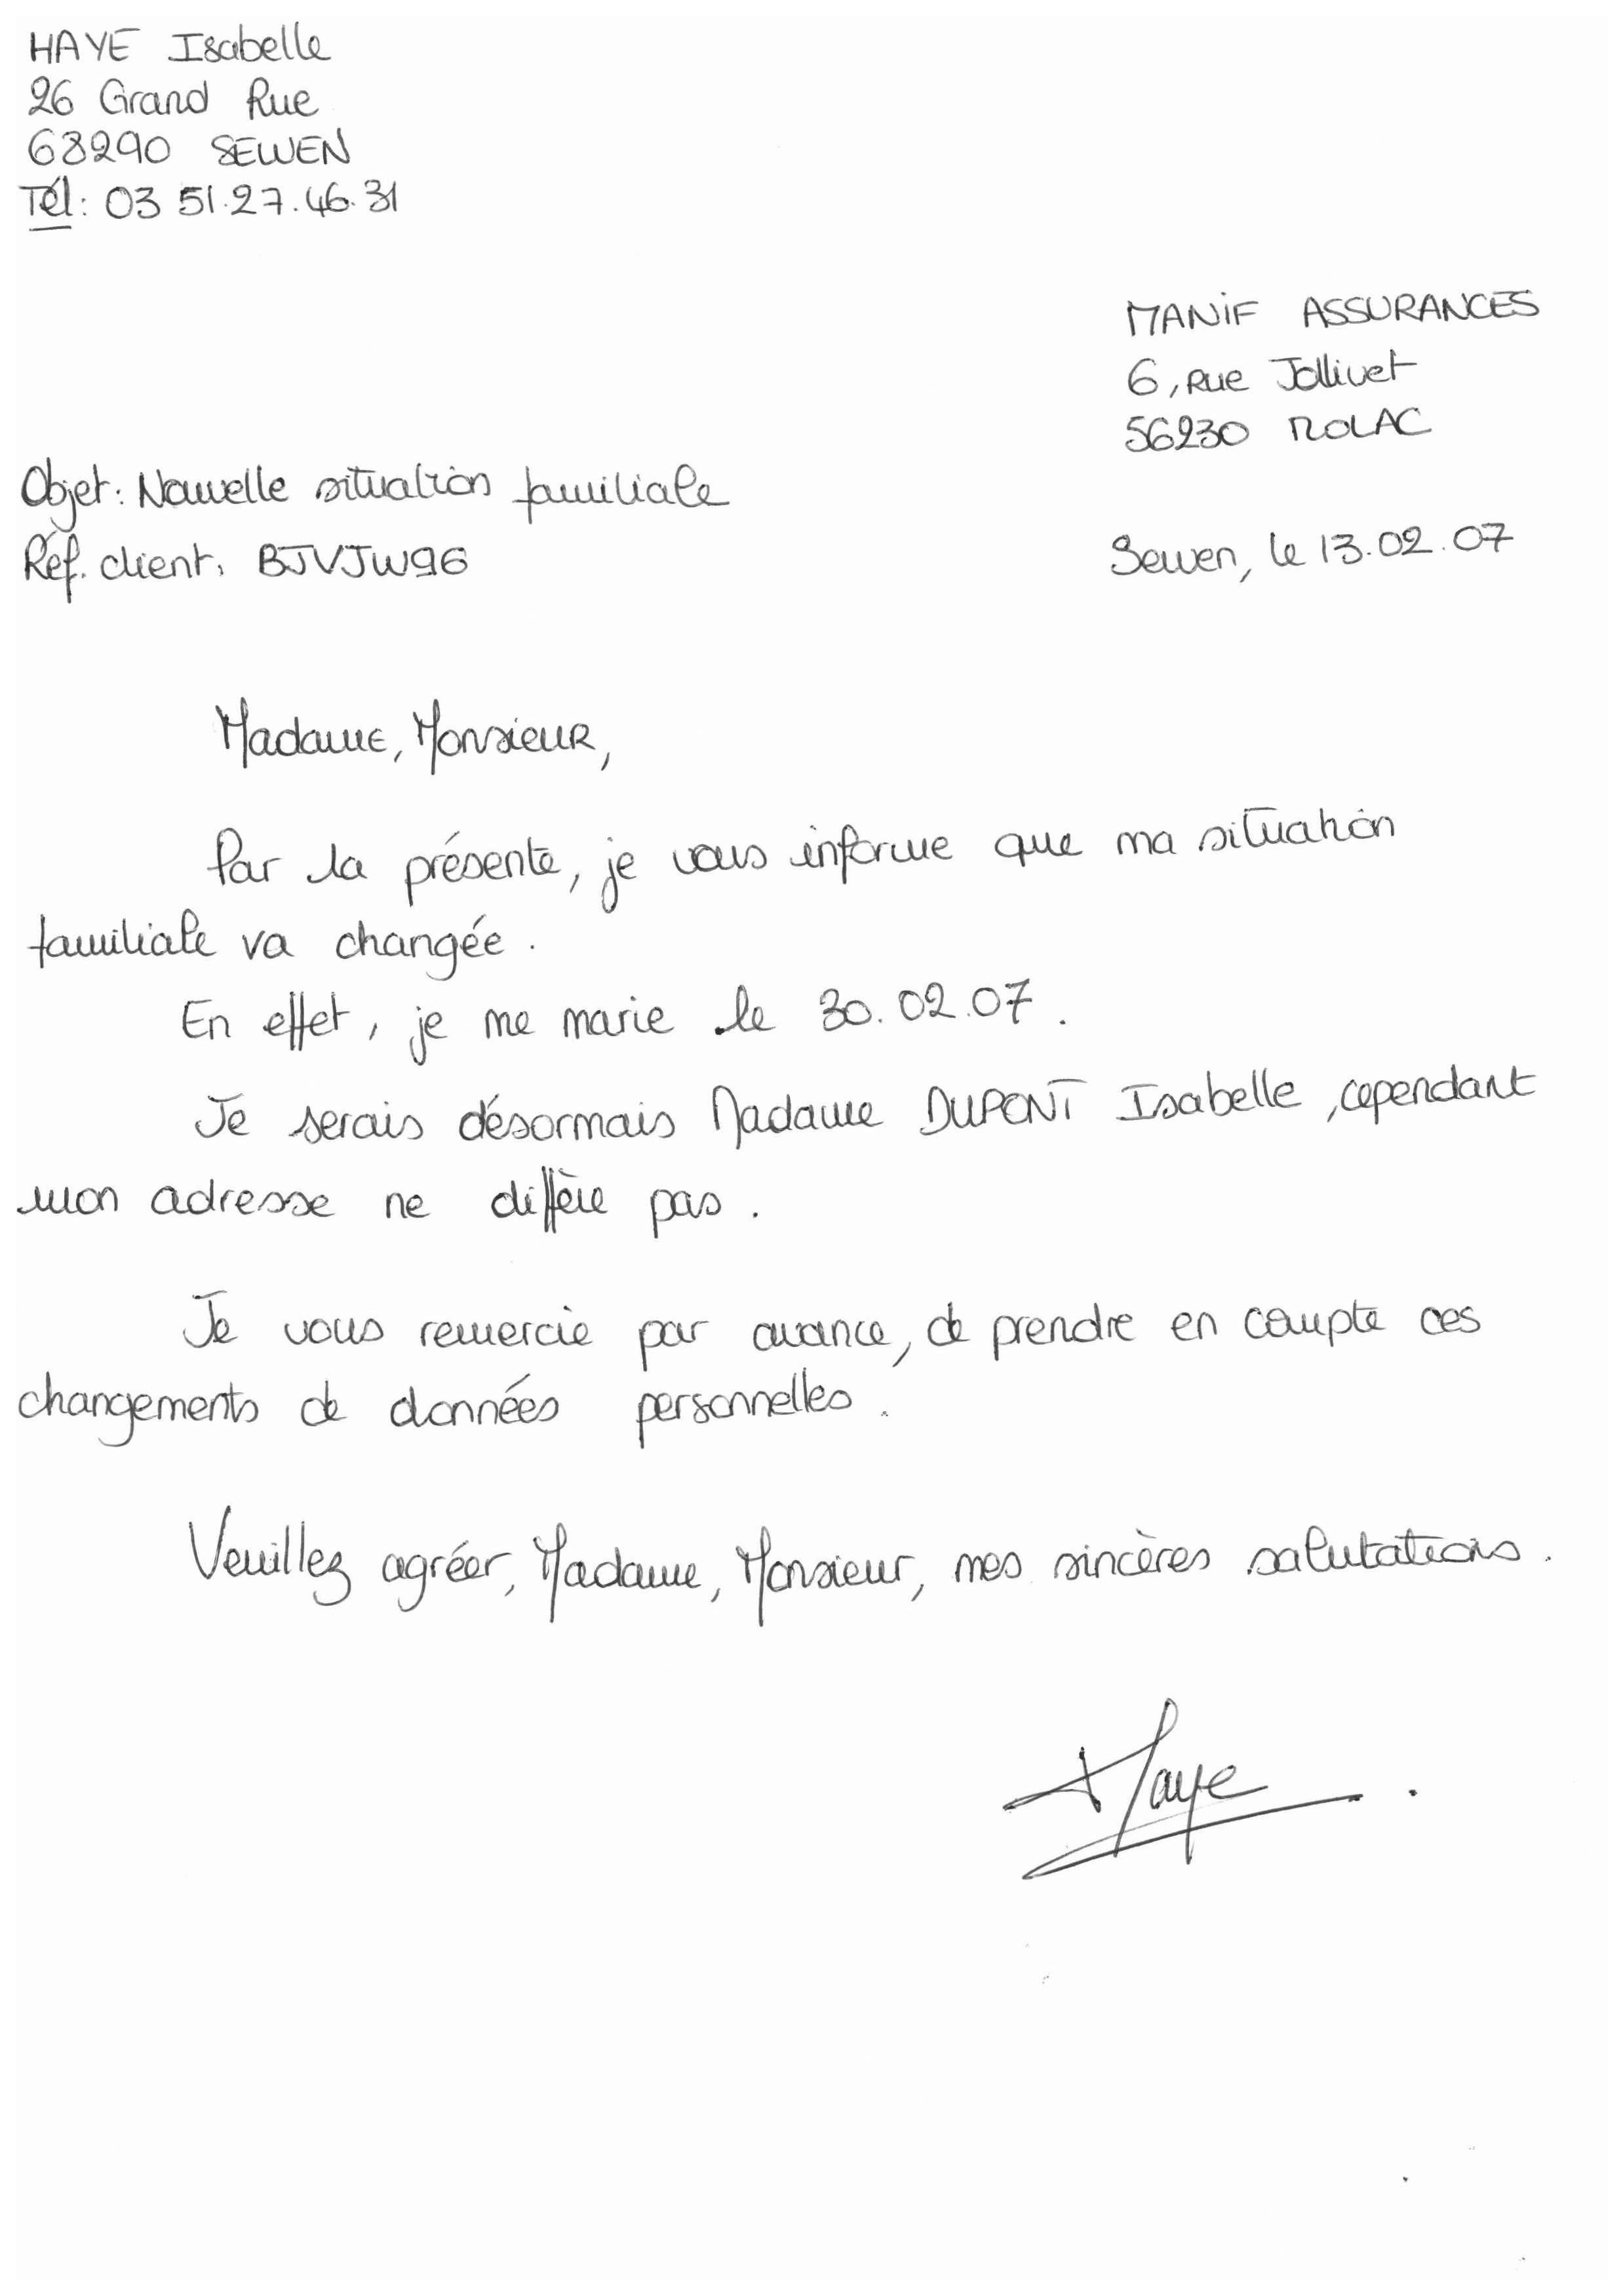 HAYE Isabelle
26 Grand Rue
68290 SEWEN
Tél: 03 51.27.46.31
MANIF ASSURANCES
6, rue Jollivet
56230 MOLAC
Objet: Nouvelle situation familiale
Réf. client: BJVJW96
Sewen, le 13.02.07
Madame, Monsieur,
Par la présente, je vous informe que ma situation
familiale va changée.
En effet, je me marie le 30.02.07.
Je serais désormais Madame DUPONT Isabelle, cependant
mon adresse ne diffère pas.
Je vous remercie par avance, de prendre en compte ces
changements de données personnelles.
Veuillez agréer, Madame, Monsieur, mes sincères salutations.
Haye